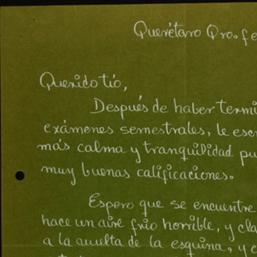 Querétaro Qro. fe
Querido tío,
Después de haber termi
exámenes semestrales, le esc
más calma y tranquilidad pu
muy buenas calificaciones.
Espero que se encuentre
hace un aire frio horrible, y cla
a la vuelta de la esquina, y c